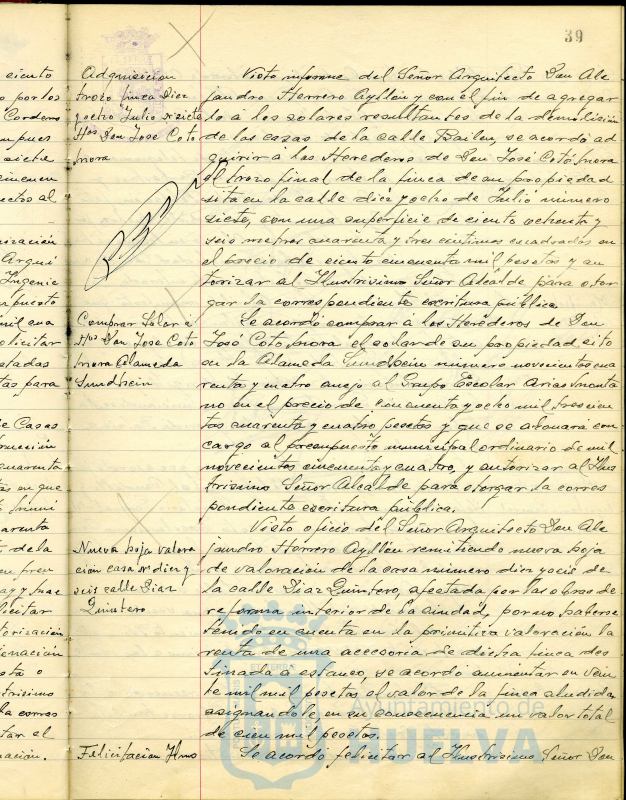 39
ciento
por los
Cordero
siete
cto al
Arqui
Ingenie
solicitar
para
Casas
cuarenta
en que
de la
en fren
licitar
torización
trisimo
la corres
tar el
Adquisicion
trozo finca Diez
y ocho Julio nº siete
Hºs Don Jose Coto
Mora
Visto informe del Señor Arquitecto Don Ale
jandro Herrero Ayllón y con el fin de agregar
lo á los solares resultantes de la demolición
de las casas de la calle Bailen, se acordó ad
quirir á los Herederos de Don José Coto Mora
el trozo final de la finca de su propiedad
sita en la calle diez y ocho de Julio número
siete, con una superficie de ciento ochenta y
seis metros cuarenta y tres centimos cuadrados en
el precio de ciento cincuenta mil pesetas y au
torizar al Ilustrisimo Señor Alcalde para otor
gar la correspondiente escritura pública.
Comprar Solar á
Hºs Don Jose Coto
Mora Alameda
Sundhein
Se acordó comprar á los Herederos de Don
José Coto Mora el solar de su propiedad, sito
en la Alameda Sundhein número novecientos cua
renta y cuatro anejo al Grupo Escolar Arias Monta
no en el precio de cincuenta y ocho mil trescien
tas cuarenta y cuatro pesetas y que se abonará con
cargo al presupuesto municipal ordinario de mil
novecientos cincuenta y cuatro, y autorizar al Ilus
trisimo Señor Alcalde para otorgar la corres
pondiente escritura pública.
Nueva hoja valora
ción casa nº diez y
seis calle Diaz
Quintero
Visto oficio del Señor Arquitecto Don Ale
jandro Herrero Ayllón remitiendo nueva hoja
de valoración de la casa número diez y seis de
la calle Diaz Quintero, afectada por las obras de
reforma interior de la ciudad, por no haberse
tenido en cuenta en la primitiva valoración la
renta de una accesoria de dicha finca des
tinada á estanco, se acordó aumentar en vein
te mil mil pesetas el valor de la finca aludida
asignandole, en su consecuencia un valor total
de cien mil pesetas.
Felicitacion Ilmo
Se acordó felicitar al Ilustrisimo Señor Don
Ayuntamiento de
HUELVA